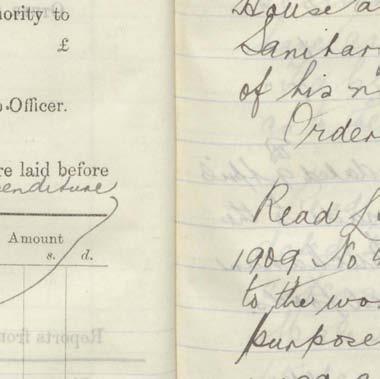 ority to
£
Officer.
re laid before
enditure
Amount
s. d.
House a
Sanitar
of his n
Order
Read
1909 No
to the wo
purpose